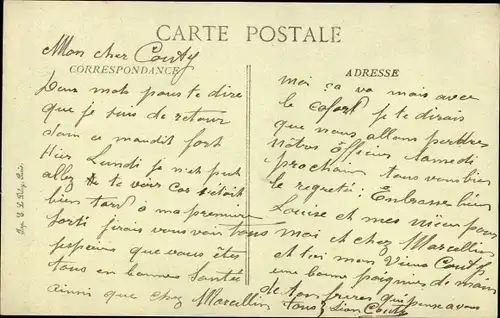 CARTE POSTALE
Mon cher Couty
CORRESPONDANCE
Deux mots pour te dire
que je suis de retour
dans ce maudit fort
Hier Lundi je n'est put
allez te voir car s'était
bien tard à ma première
sorti j'irais vous voir tous
j'espères que vous êtes
tous en bonnes Santé
ainsi que chez Marcellin
ADRESSE
moi ça va mais avec
le cafart je te dirais
que nous allons perttre
nôtre Officier Samedi
prochain tous vous bien
le regreté. Embrasse bien
Louise et mes nièces pour
moi et chez Marcellin
et toi mon Vieux Couty
une bonne poignier de main
de ton frères qui pense a vous
tous Léon Couty
Imp. E. Le Deley, Paris.